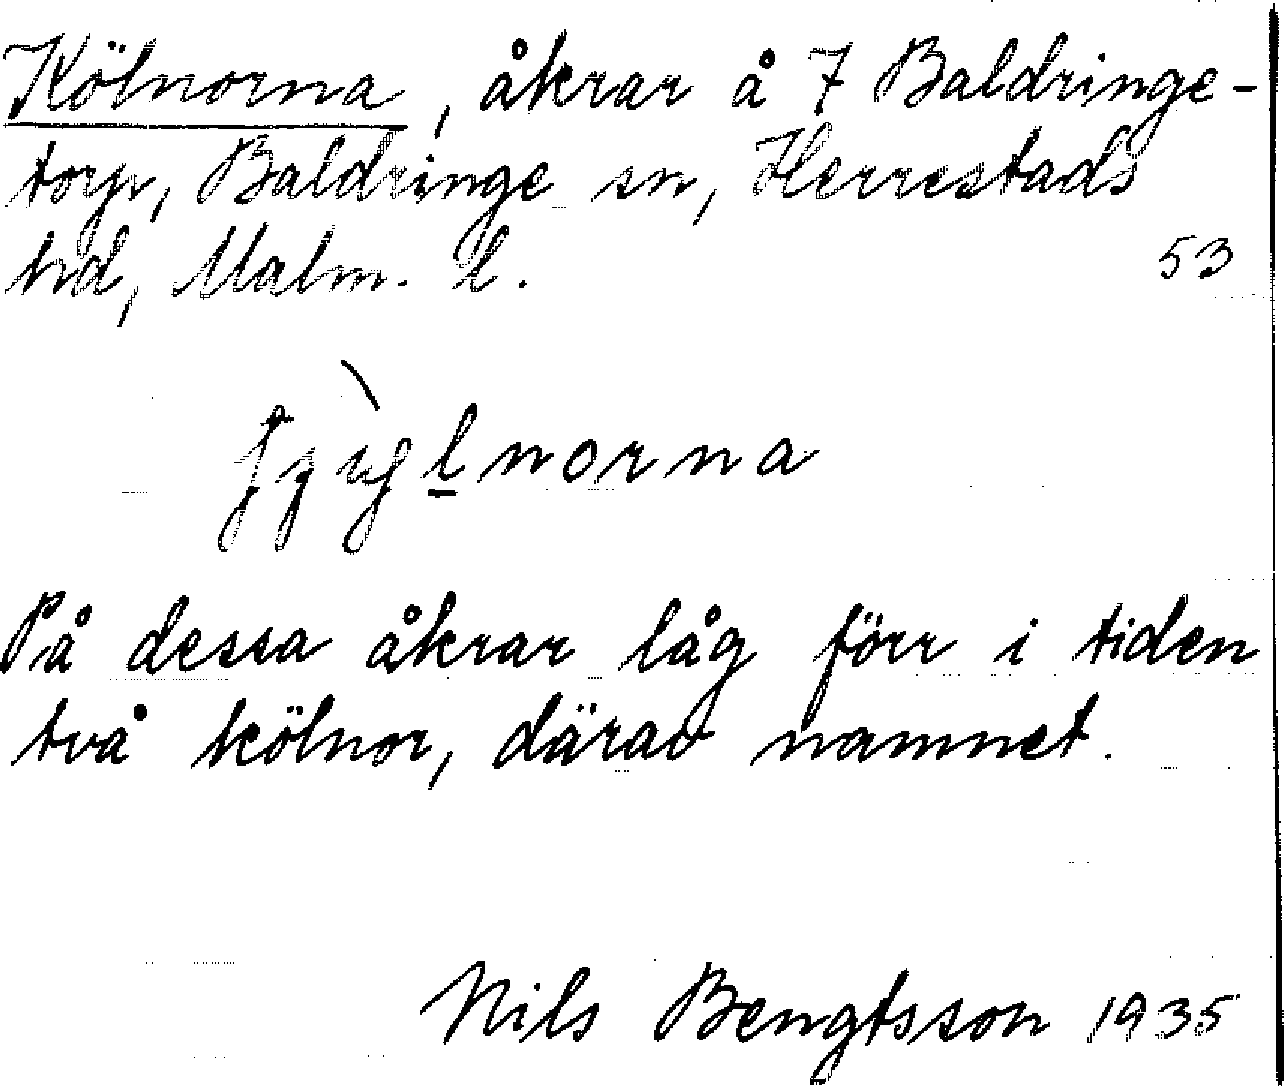 Kölnorna, åkrar å 7 Baldringe-
torp, Baldringe sn, Herrestads
hd, Malm. l.
53
På dessa åkrar låg förr i tiden
två kölnor, därav namnet.
Nils Bengtsson 1935